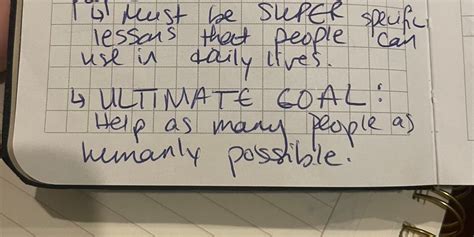 ↳ Must be SUPER specific
lessons that people can
use in daily lives.
↳ ULTIMATE GOAL:
Help as many people as
humanly possible.